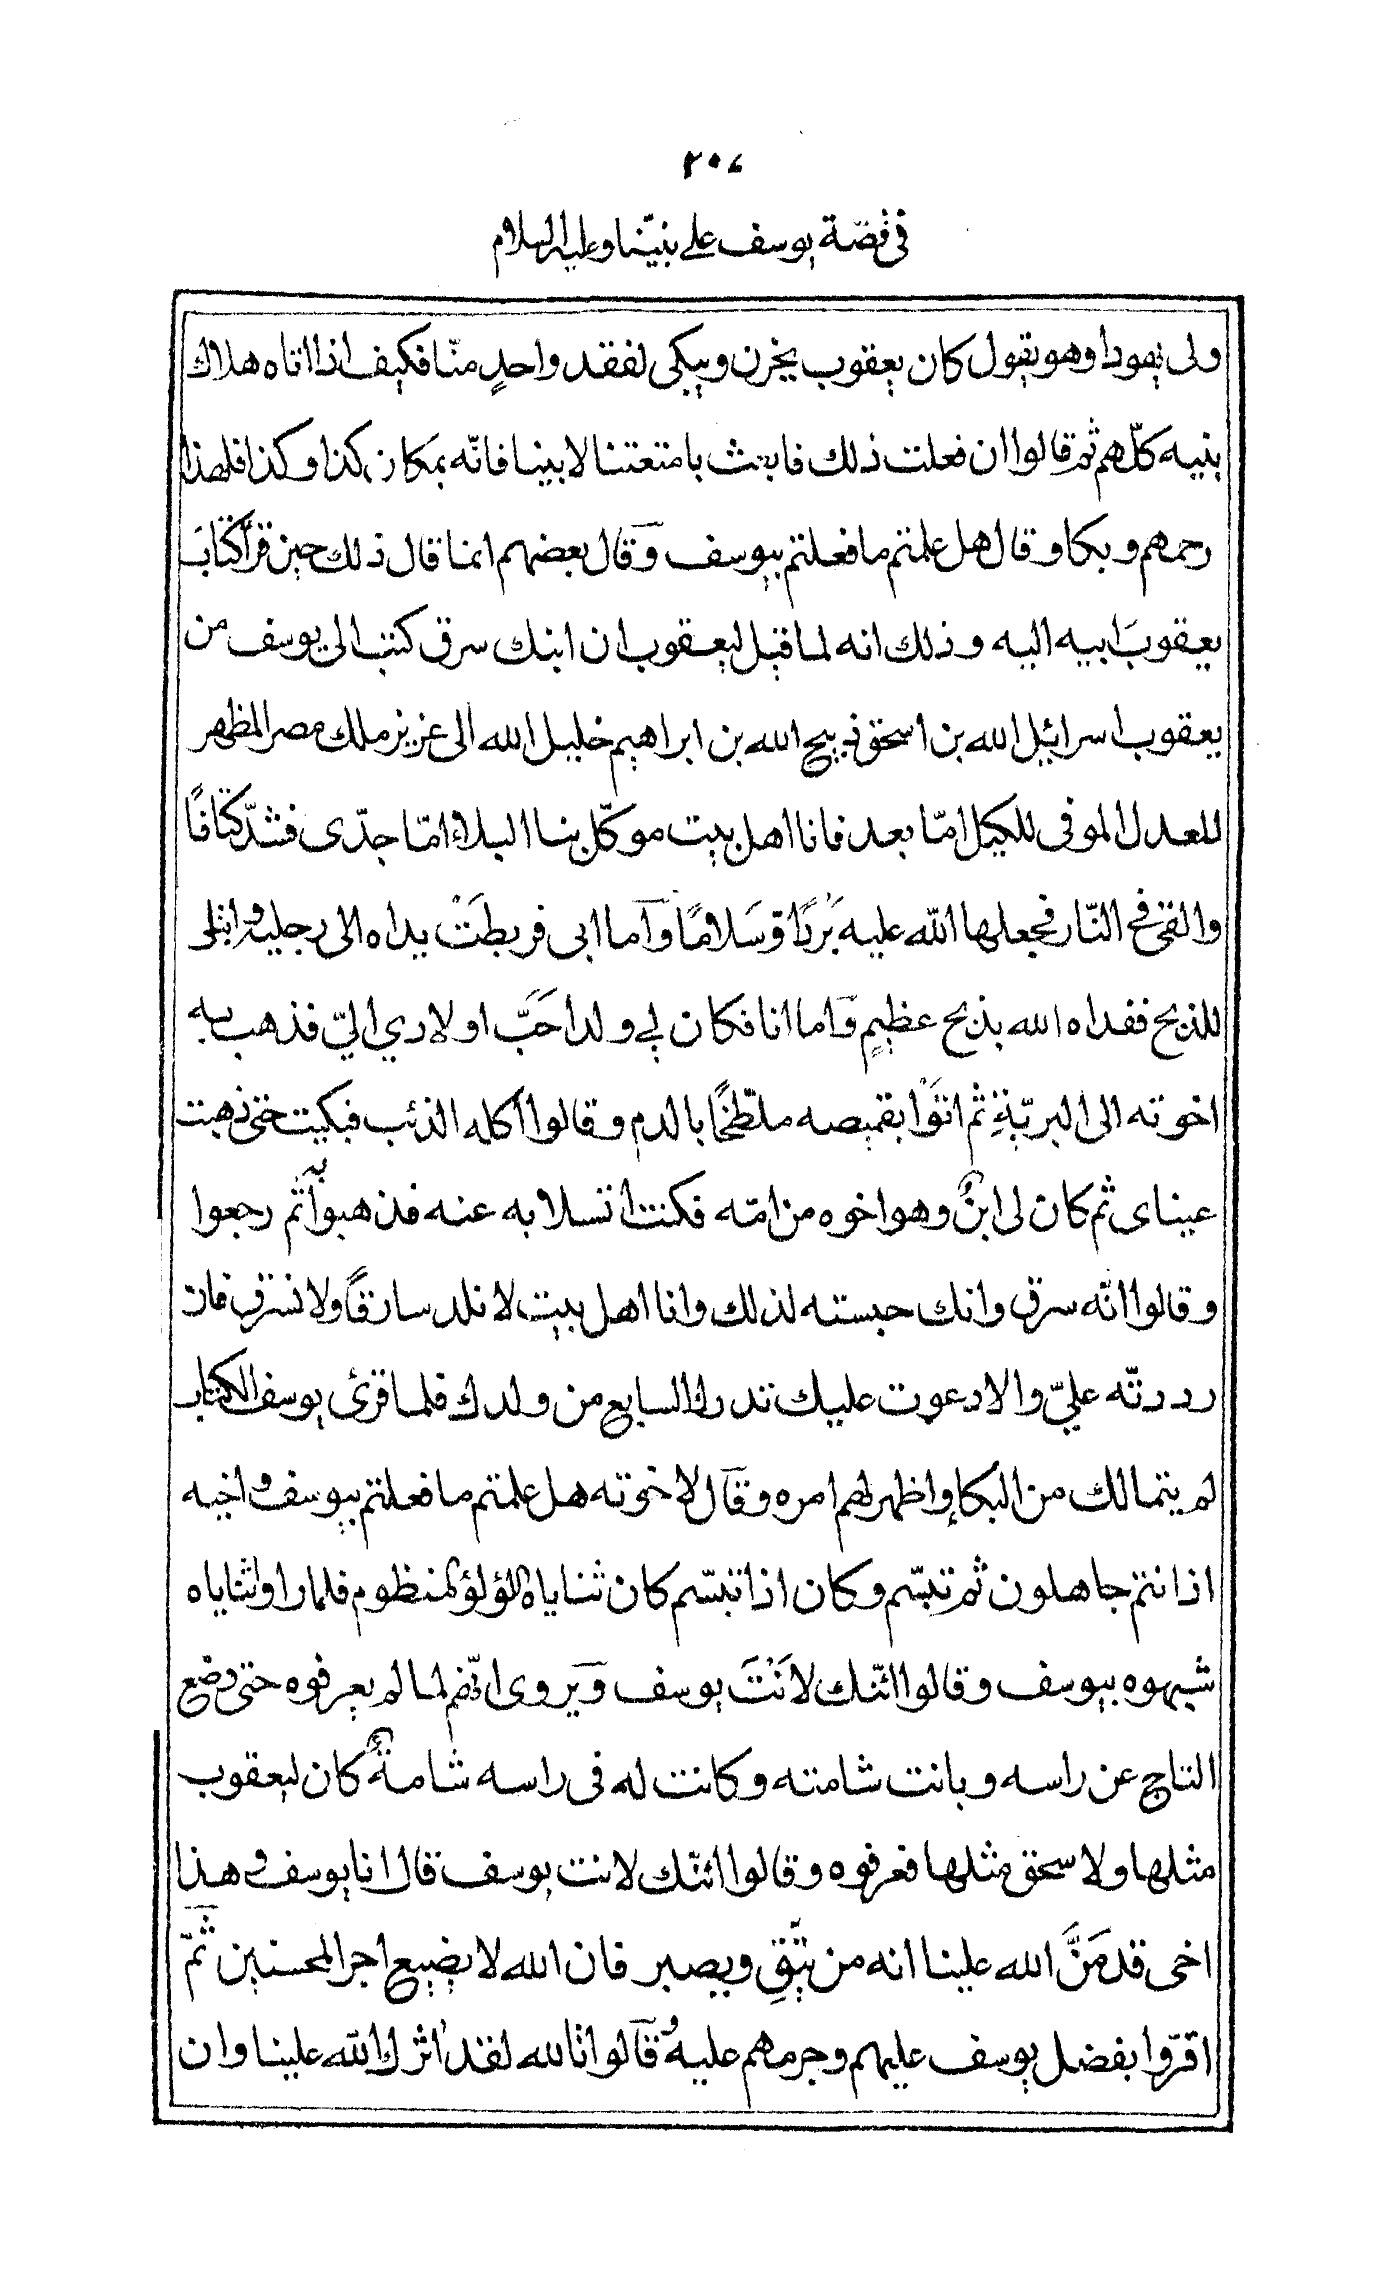 ٢٠٧
في قصّة يوسف على نبيّنا وعليه السلام
ولى يهودا وهو يقول كان يعقوب يحزن ويبكى لفقد واحدٍ منّا فكيف اذا اتاه هلاك
بنيه كلّهم ثم قالوا ان فعلت ذلك فابعث بامتعتنا لابينا فانّه بمكان كذا وكذا فلهذا
رحمهم وبكا وقال هل علمتم ما فعلتم بيوسف وقال بعضهم انما قال ذلك حين قرأ كتابَ
يعقوبَ ابيه اليه وذلك انه لما قيل ليعقوب ان ابنك سرق كتب الى يوسف من
يعقوب اسرائيل الله بن اسحق ذبيح الله بن ابراهيم خليل الله الى عزيز ملك مصر المظهر
للعدل الموفى للكيل امّا بعد فانا اهل بيت موكّل بنا البلاء امّا جدّى فشدّ كتافًا
والقى في النّار فجعلها الله عليه بَردًا وَسَلامًا وآما ابى فربطَتْ يداه الى رجليه وابتلى
للذبح ففداه الله بذبح عظيمٍ وآما انا فكان لي ولد احَبَّ اولادي اليّ فذهب به
اخوته الى البريّةِ ثم اتَوْا بقميصه ملطّخًا بالدم وقالوا اكله الذئب فبكيت حتى ذهبت
عيناى ثم كان لى ابنٌ وهو اخوه من امّه فكنت اتسلا به عنه فذهبوا به ثم رجعوا
وقالوا انّه سرق وانك حبسته لذلك وانا اهل بيت لا نلد سارقًا ولا نسرق فان
رددتّه عليّ والا دعوت عليك تدرك السابع من ولدك فلما قرئ يوسف الكتاب
لم يتمالك من البكاء واظهر لهم امره وقآل لاخوته هل علمتم ما فعلتم بيوسف واخيه
اذ انتم جاهلون ثم تبسّم وكان اذا تبسّم كان ثناياه كاللؤلؤ المنظوم فلما راوا ثناياه
شبهوه بيوسف وقالوا ائنّك لاَنْتَ يوسف وَيروى انّهم لما لم يعرفوه حتى وضع
التاج عن راسه وبانت شامته وكانت له فى راسه شامةٌ كان ليعقوب
مثلها ولاسحق مثلها فعرفوه وقالوا ائنّك لانت يوسف قال انا يوسف وهذا
اخى قد مَنَّ الله علينا انه من يتّقِ ويصبر فان الله لا يضيع اجر المحسنين ثمّ
اقرّوا بفضل يوسف عليهم وجرمهم عليه وُ قآلوا تالله لقد اٰثرك الله علينا وان